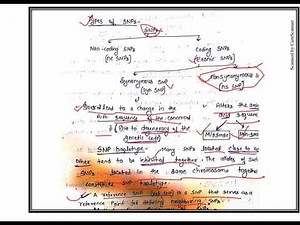 Types of SNPs-
SNPs
Non-coding SNPs
[nc SNPs]
Coding SNPs
[Exonic SNPs]
Synonymous SNP
(syn SNP)
Nonsynonymous
[ns SNP]
to a change in the
sequence of the concerned
(Due to degeneracy of the
genetic code)
Alters the
Missense
SNP haplotype- Many SNPs located close to each
other tend to be inherited together. The alleles of such
SNPs located in the same chromosome together
constitute SNP haplotype.
A reference SNP is a SNP that serves as a
reference Point for defining neighbouring SNPs
Scanned by CamScanner